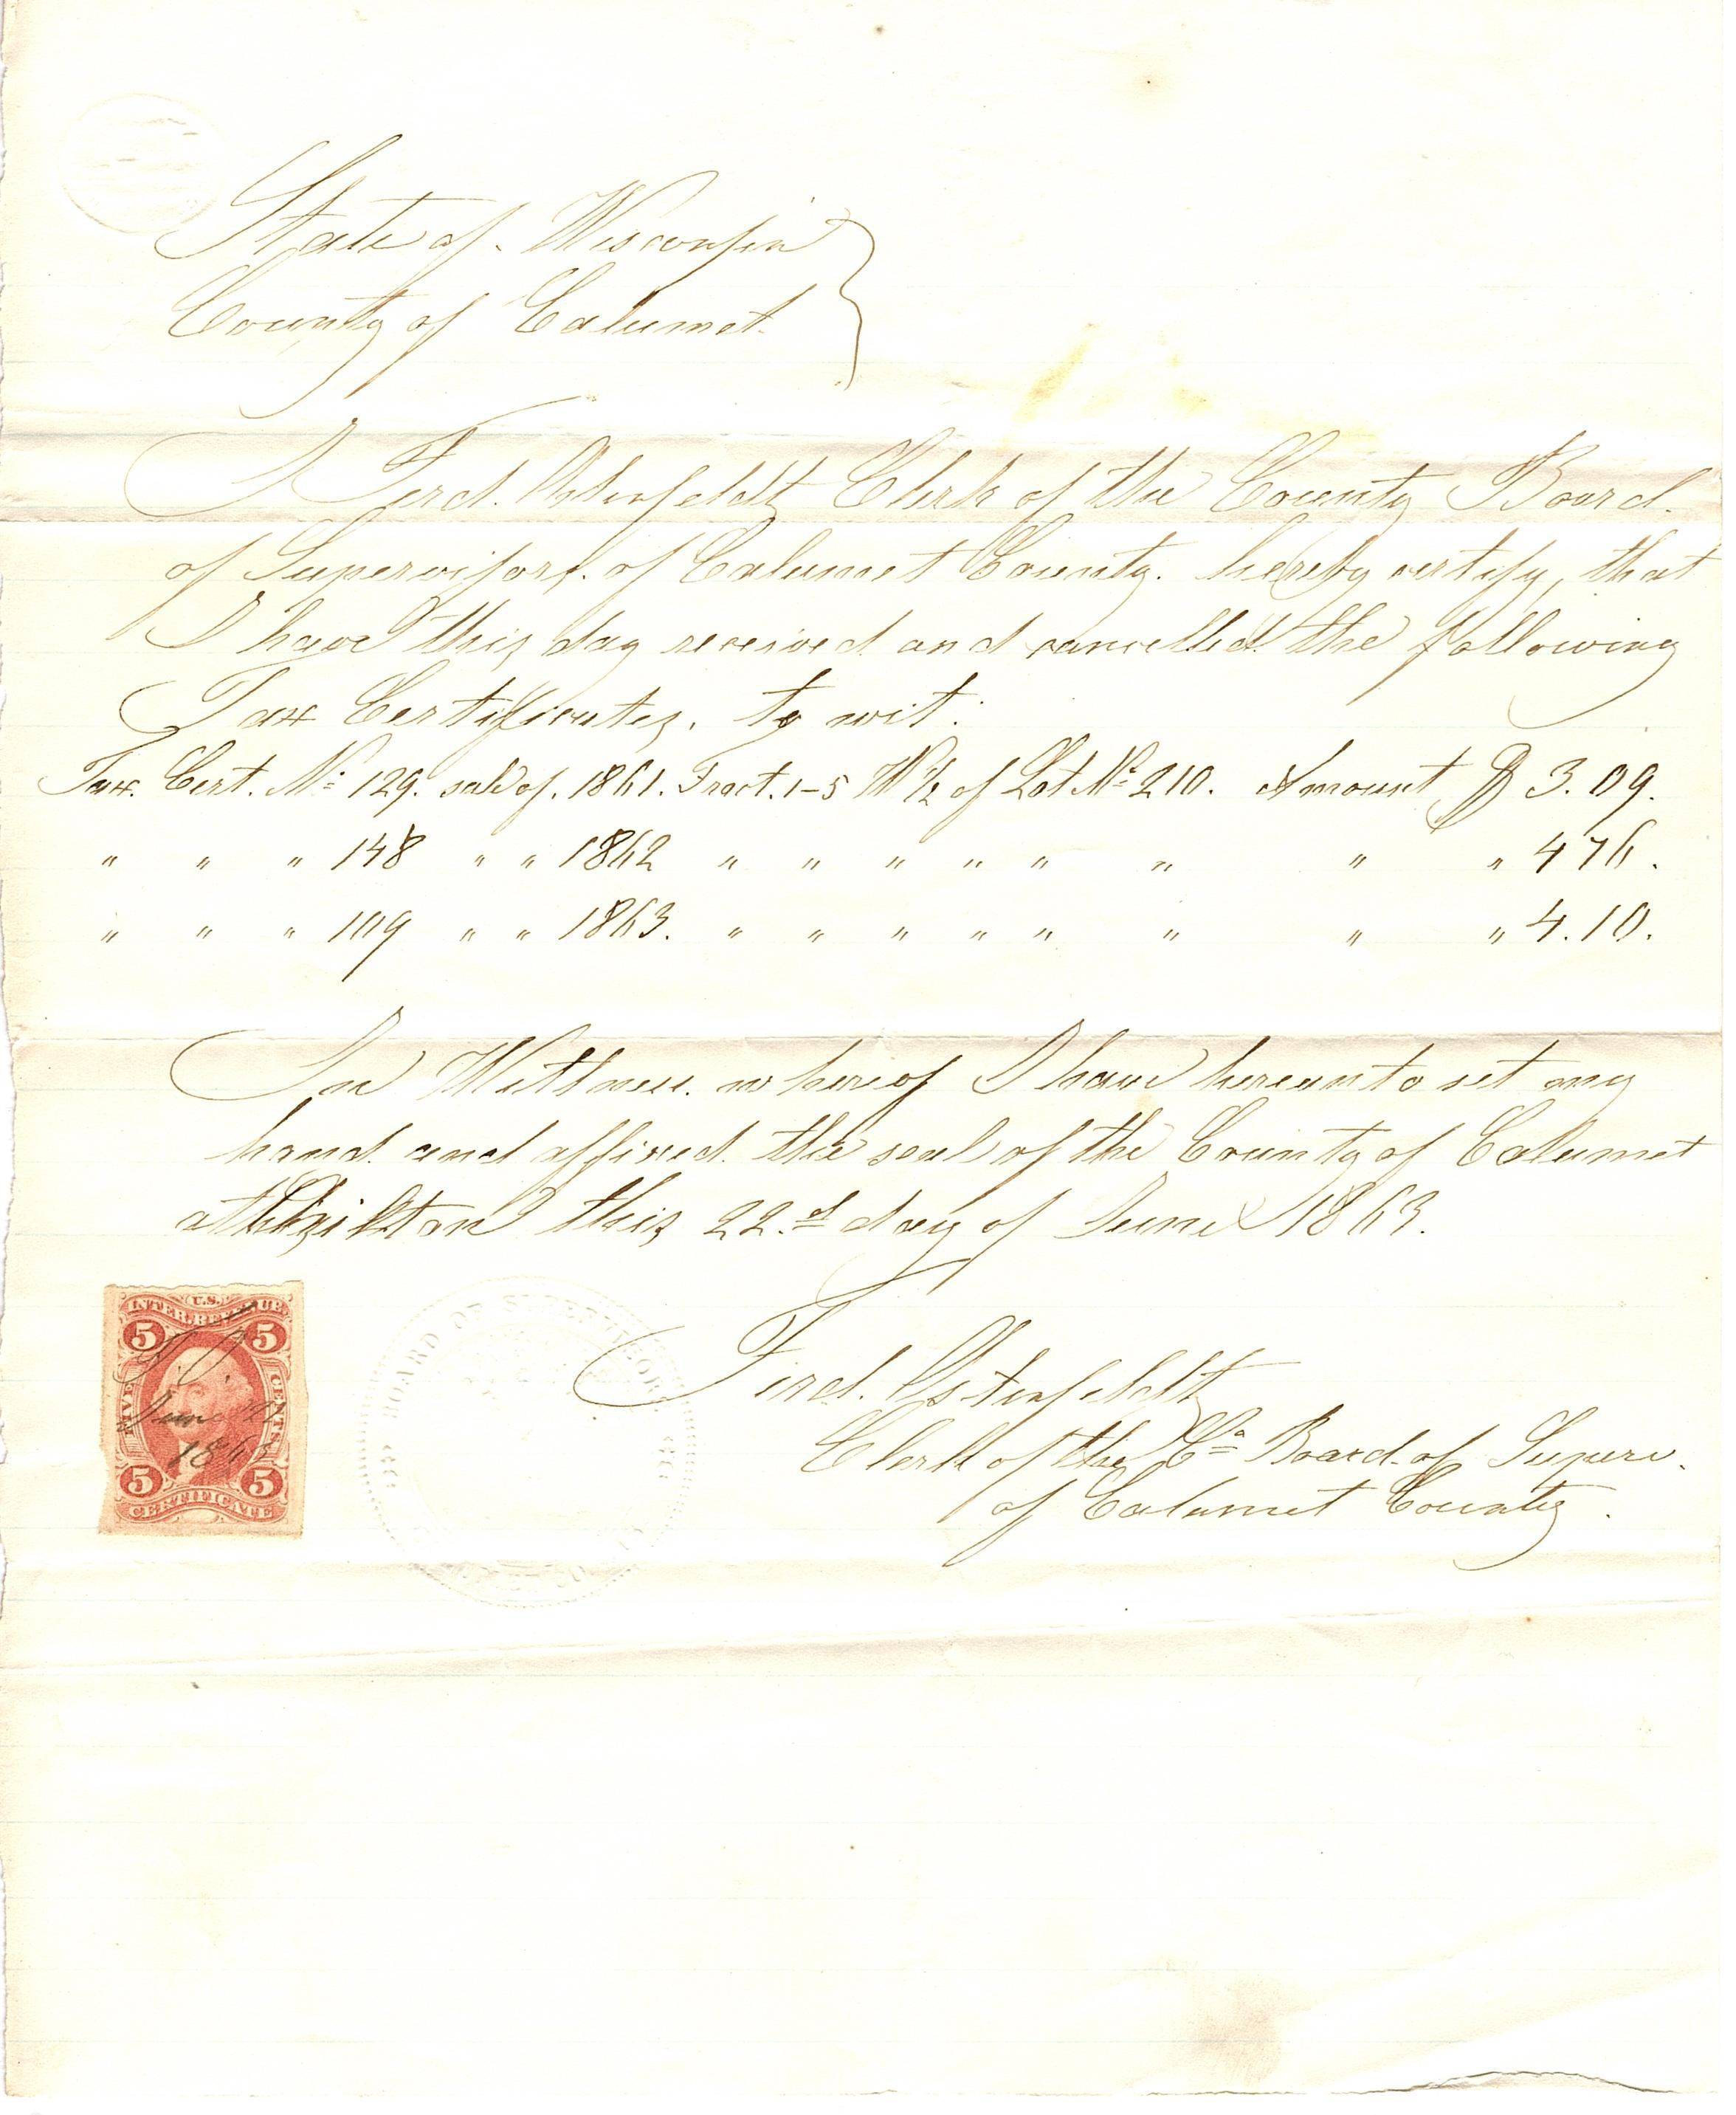 State of Wisconsin
County of Calumet.
I Ferd. Ostenfeldt Clerk of the County Board.
of Supervisors. of Calumet County. hereby certify, that
I have this day received and cancelled the following
Tax Certificates. to wit:
Tax. Cert. No 129. sale of. 1861. Fract. 1-5 W 1/2 of Lot No 210. Amount D 3.09.
" " " 148 " " 1862 " " " " " " " " 4 76.
" " " 109 " " 1863. " " " " " " " " 4.10.
In Wittness. whereof I have hereunto set my
hand. and affixed. the seal of the County of Calumet
at Chilton this 22.d day of June 1863.
U.S.
INTER. REVENUE
5 5
F.O.
FIVE CENTS
June 22
1863
5 5
CERTIFICATE
BOARD OF SUPERVISORS
Ferd. Ostenfeldt
Clerk of the Co Board. of Superv.
of Calumet County.